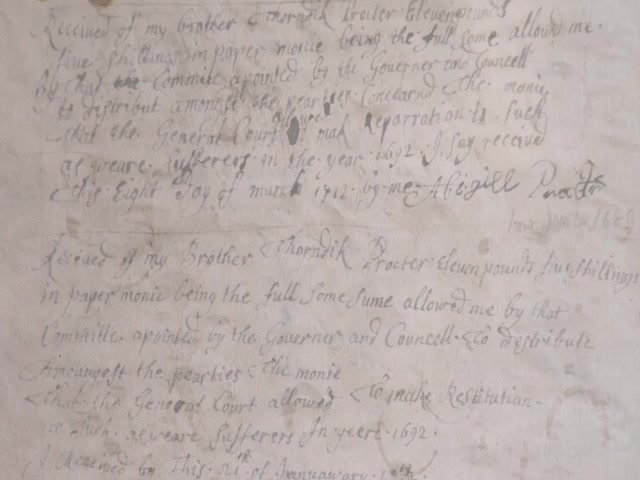 Received of my brother Thorndik Procter Eleven pounds
five shillings in paper monie being the full some allowed me
by that Committe apointed by the Governer and Councell
to distribut amongst the pearties Concearnd The monie
that the General Court allowed to mak Reparration to such
as weare sufferers in the year 1692 I say received
this Eight Day of march 1712 by me Abigill Procter
born 1689
Recived of my Brother Thorndik Procter Eleven pounds five shillings
in paper monie being the full some sume allowed me by that
Committe apointed by the Governer and Councell To Destribute
Amoungest the pearties The monie
that the General Court allowed To make Restitution
to such as weare Sufferers In yeere 1692
I Received by This 21th of Jannuarary